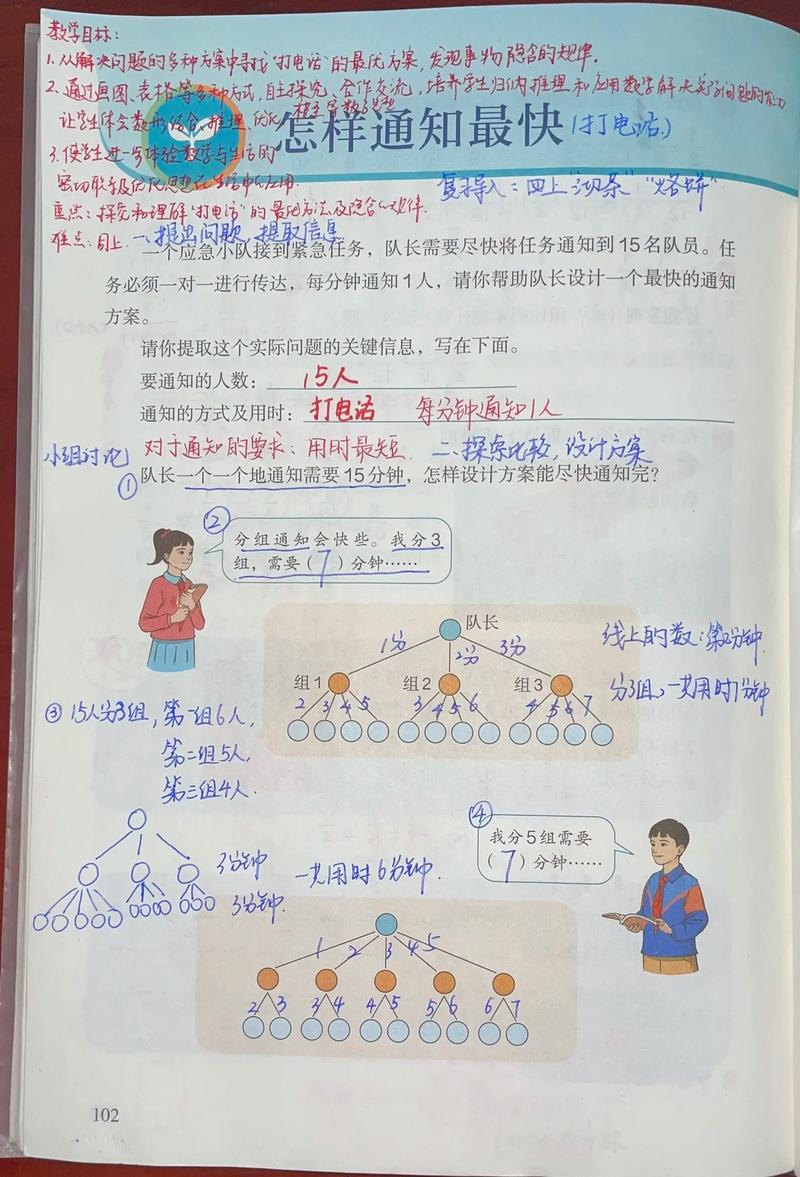 教学目标:
1. 从解决问题的多种方案中寻找"打电话"的最优方案,发现事物隐含的规律.
2. 通过画图、表格等多种方式,自主探究、合作交流,培养学生归纳推理和应用数学解决实际问题的能力
让学生体会数形结合、推理、优化、模型等数学思想
3. 使学生进一步体验数学与生活的
密切联系及优化思想在生活中的应用.
怎样通知最快(打电话)
复习导入:四上"沏茶""烙饼"
重点:探究和理解"打电话"的最优方法及隐含的规律.
难点:同上.
一、提出问题,提取信息
一个应急小队接到紧急任务,队长需要尽快将任务通知到15名队员。任
务必须一对一进行传达,每分钟通知1人,请你帮助队长设计一个最快的通知
方案。
请你提取这个实际问题的关键信息,写在下面。
要通知的人数:15人
通知的方式及用时:打电话 每分钟通知1人
小组讨论 对于通知的要求:用时最短. 二、探索比较,设计方案
① 队长一个一个地通知需要15分钟,怎样设计方案能尽快通知完?
②
分组通知会快些。我分3
组,需要(7)分钟……
队长
1分 2分 3分
线上的数:第几分钟.
组1 组2 组3
分3组,一共用时7分钟
2 3 4 5 3 4 5 6 4 5 6 7
③ 15人分3组,第一组6人,
第二组5人,
第三组4人.
④
我分5组需要
(7)分钟……
3分钟
3分钟.
一共用时6分钟.
1 2 3 4 5
2 3 3 4 4 5 5 6 6 7
102